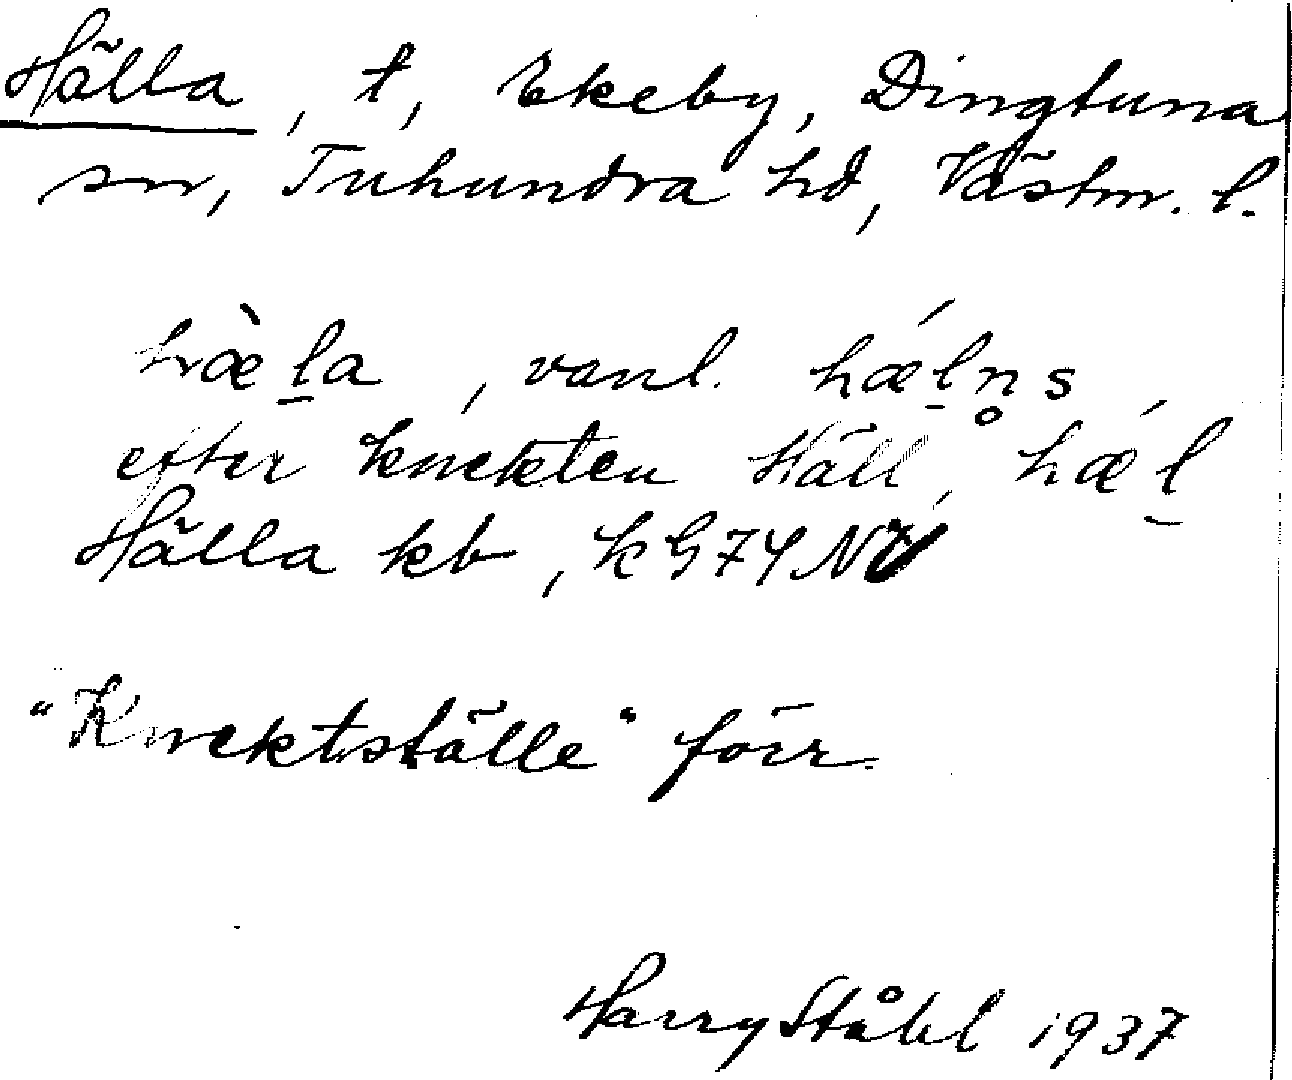 Hälla, t, Ekeby, Dingtuna
sn, Tuhundra hd, Västm. l.
hæ̀l̠a, vanl. hǽl̠n̥s,
efter knekten Häll, hǽl̠
Hälla kb, kG74NV
"Knektställe" förr.
Harry Ståhl 1937